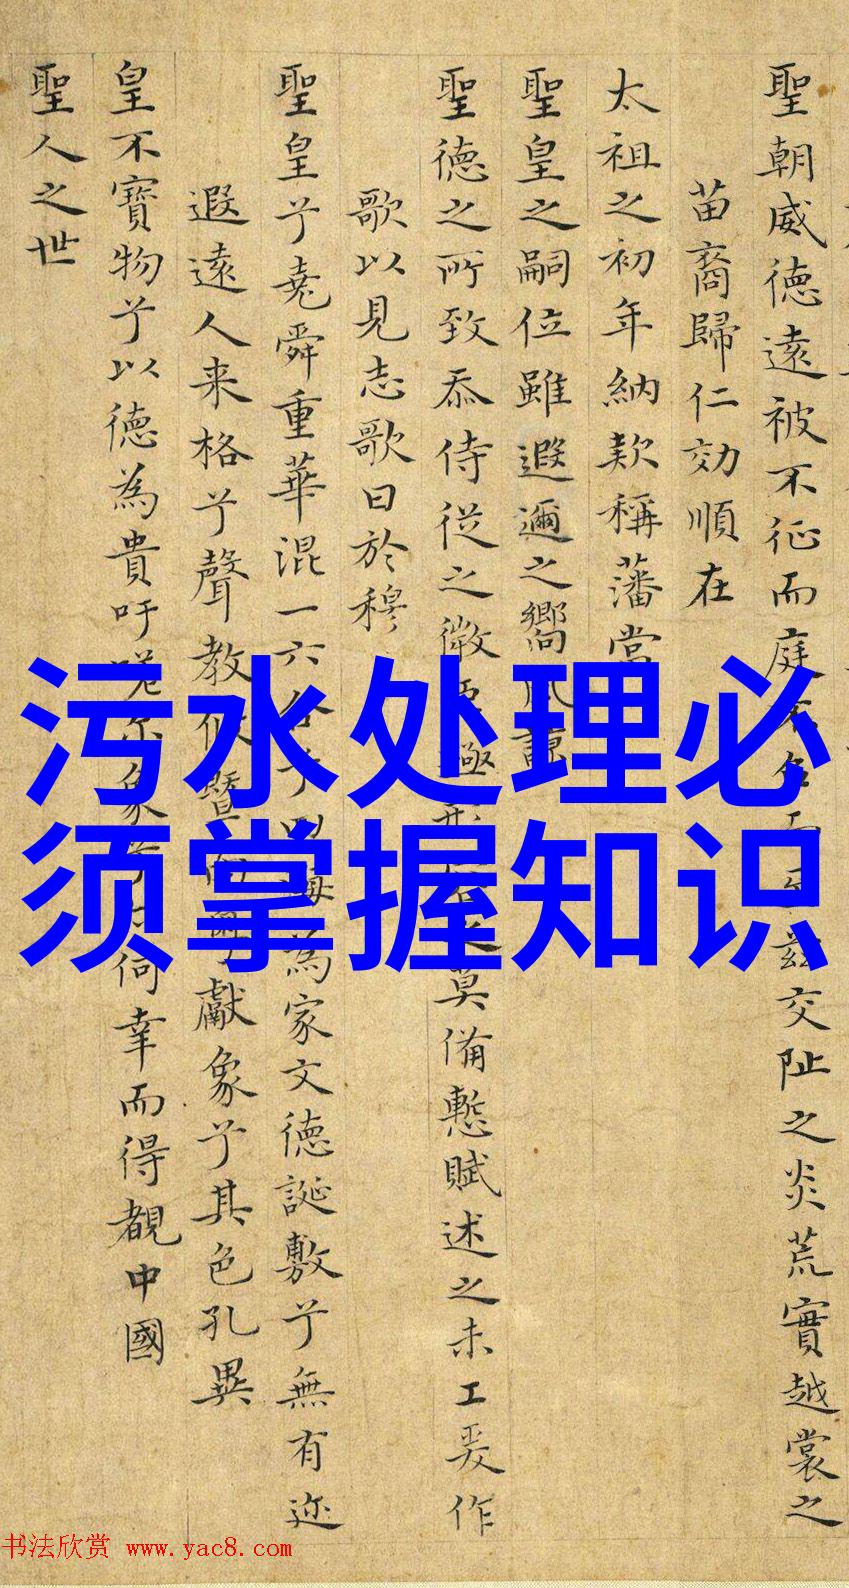 聖朝威德遠被不征而庭
茲交阯之炎荒實越裳之
苗裔歸仁効順在
太祖之初年納款稱藩當
聖皇之嗣位雖遐邇之嚮風
聖德之所致忝侍從之微
莫備慙賦述之未工爰作
歌以見志歌曰於穆
聖皇兮堯舜重華混一六合兮
為家文德誕敷兮無有迩
遐遠人来格兮聲教攸暨
獻象兮其色孔異
皇不寶物兮以德為貴吁嗟尔象兮
何幸而得覩中國
聖人之世
污水处理必
须掌握知识
书法欣赏 www.yac8.com